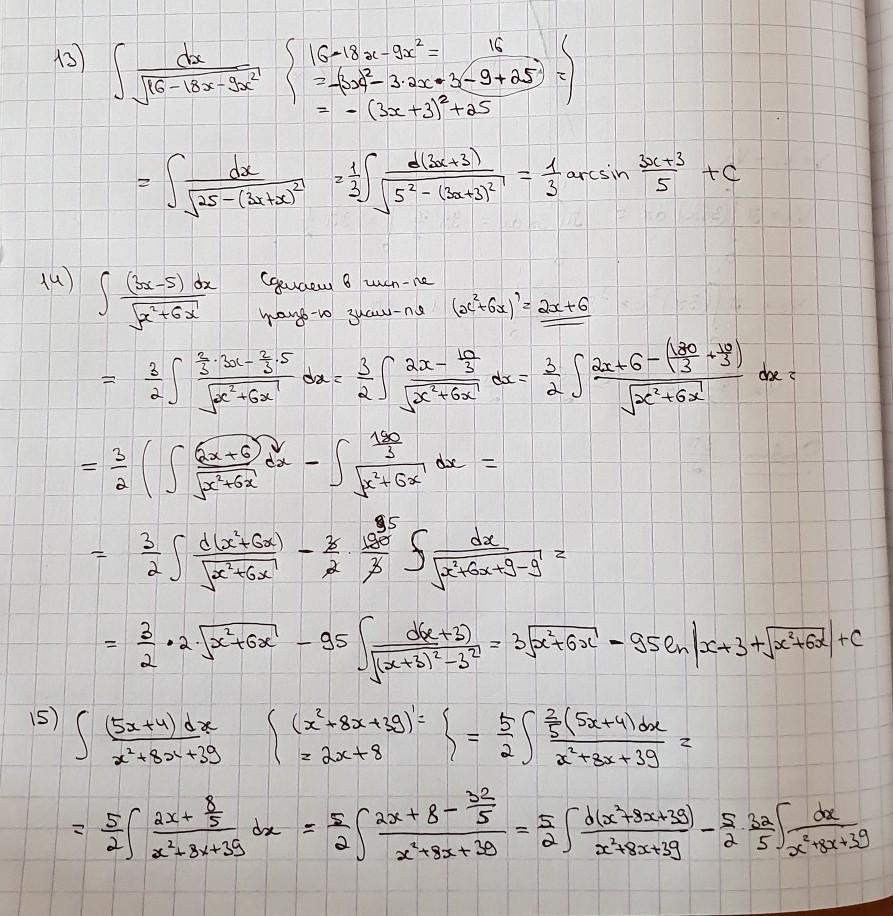 13) ∫ dx/√(16-18x-9x²) { 16-18x-9x² = 16
= -(3x)² - 3·2x·3 - 9+25 = }
= - (3x+3)² + 25
= ∫ dx/√(25-(3x+x)²) = 1/3 ∫ d(3x+3)/√(5² - (3x+3)²) = 1/3 arcsin (3x+3)/5 + C
14) ∫ (3x-5) dx/√(x²+6x) Сделаем в числ-ле
произв-ю знам-ля (x²+6x)' = 2x+6
= 3/2 ∫ (2/3·3x - 2/3·5)/√(x²+6x) dx = 3/2 ∫ (2x - 10/3)/√(x²+6x) dx = 3/2 ∫ (2x+6 - (180/3 + 10/3))/√(x²+6x) dx =
= 3/2 ( ∫ (2x+6)/√(x²+6x) dx - ∫ (190/3)/√(x²+6x) dx =
= 3/2 ∫ d(x²+6x)/√(x²+6x) - 3/2 · 190/3 95 ∫ dx/√(x²+6x+9-9) =
= 3/2 · 2 · √(x²+6x) - 95 ∫ d(x+3)/√((x+3)²-3²) = 3√(x²+6x) - 95 ln|x+3+√(x²+6x)| + C
15) ∫ (5x+4) dx/(x²+8x+39) { (x²+8x+39)' =
= 2x+8 } = 5/2 ∫ 2/5(5x+4)dx/(x²+8x+39) =
= 5/2 ∫ (2x + 8/5)/(x²+8x+39) dx = 5/2 ∫ (2x+8 - 32/5)/(x²+8x+39) = 5/2 ∫ d(x²+8x+39)/(x²+8x+39) - 5/2 · 32/5 ∫ dx/(x²+8x+39)